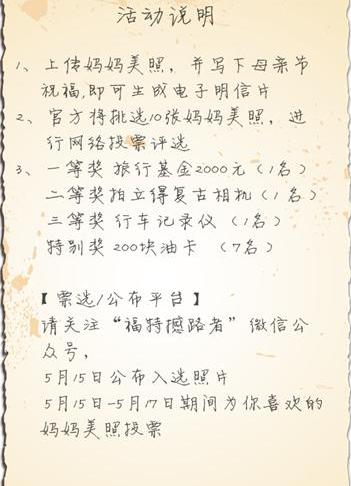 活动说明
1、上传妈妈美照，并写下母亲节
祝福，即可生成电子明信片
2、官方将挑选10张妈妈美照，进
行网络投票评选
3、一等奖 旅行基金2000元（1名）
二等奖拍立得复古相机（1名）
三等奖 行车记录仪（1名）
特别奖 200块油卡 （7名）
【票选/公布平台】
请关注“福特撼路者”微信公
众号，
5月15日公布入选照片
5月15日-5月17日期间为你喜欢的
妈妈美照投票